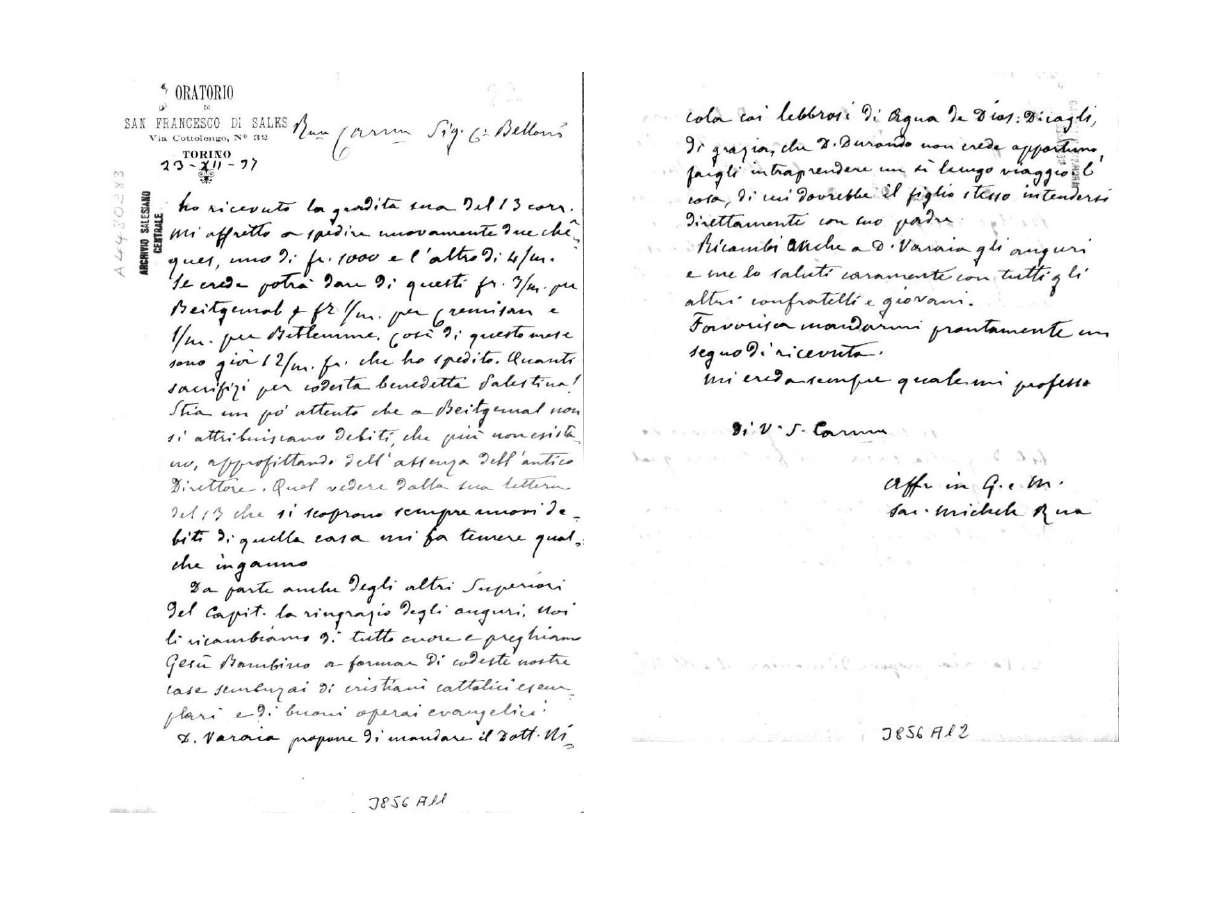 ORATORIO
DI
SAN FRANCESCO DI SALES
Via Cottolengo, Nº 32
TORINO
23-XII-97
Rev.mo Car.mo Sig. C. Belloni
A4480283
ARCHIVIO SALESIANO
CENTRALE
ho ricevuto la gradita sua del 13 corr.
Mi affretto a spedire nuovamente due chè-
ques, uno di fr. 1000 e l'altro di 4/m.
Se crede potrà dare di questi fr. 3/m. per
Beitgemal + fr 1/m. per Cremisan e
1/m. per Betlemme. Così di questo mese
sono già 12/m. fr. che ho spedito. Quanti
sacrifizi per codesta benedetta Palestina!
Stia un po' attento che a Beitgemal non
si attribuiscano debiti, che più non esista-
no, approfittando dell'assenza dell'antico
Direttore. Quel vedere dalla sua lettera
del 13 che si scoprono sempre nuovi de-
biti di quella casa mi fa temere qual-
che inganno
Da parte anche degli altri Superiori
del Capit. la ringrazio degli auguri. Noi
li ricambiamo di tutto cuore e preghiamo
Gesù Bambino a formar di codeste nostre
case semenzai di cristiani cattolici esem-
plari e di buoni operai evangelici.
D. Varaia propone di mandare il Dott. Ni-
J856 A11
cola coi lebbrosi di Agua de Dios: Dicagli,
di grazia, che D. Durando non crede opportuno,
fargli intraprendere un sì lungo viaggio. È
cosa, di cui dovrebbe il figlio stesso intendersi
direttamente con suo padre.
Ricambi anche a D. Varaia gli auguri
e me lo saluti caramente con tutti gli
altri confratelli e giovani.
Favorisca mandarmi prontamente un
segno di ricevuta.
Mi creda sempre quale mi professo
Di V. S. Car.ma
Aff. in G. e M.
Sac. Michele Rua
J856 A12